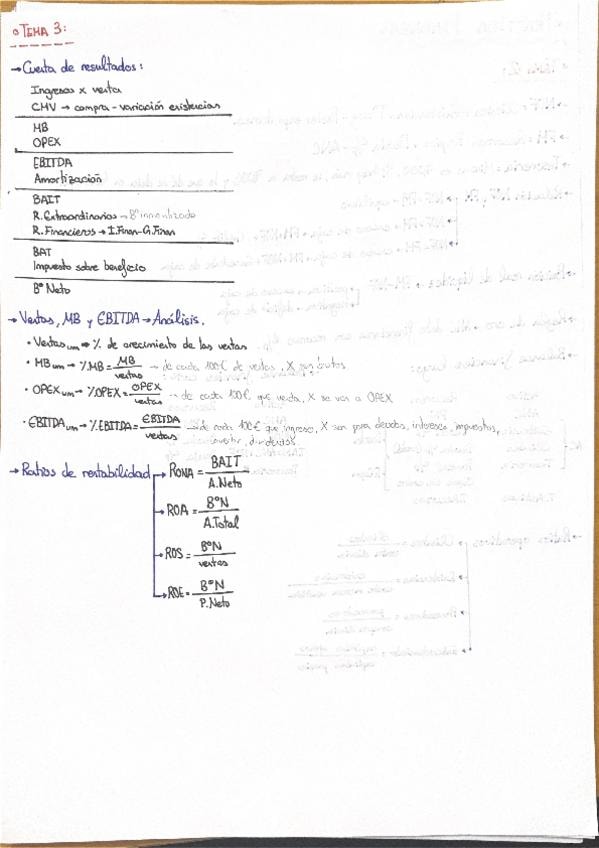 o TEMA 3:
→ Cuenta de resultados:
Ingresos x venta
CMV → compra - variación existencias
MB
OPEX
EBITDA
Amortización
BAIT
R. Extraordinarios → Bº inmovilizado
R. Financieros → I. Finan - G. Finan
BAT
Impuesto sobre beneficio
Bº Neto
→ Ventas, MB y EBITDA → Análisis.
• Ventas um → % de crecimiento de las ventas
• MB um → %MB = MB / ventas → de cada 100€ de ventas, X son brutos
• OPEX um → %OPEX = OPEX / ventas → de cada 100€ que venda, X se van a OPEX
• EBITDA um → %EBITDA = EBITDA / ventas → de cada 100€ que ingreso, X son para deudas, intereses, impuestos,
invertir, dividendos.
→ Ratios de rentabilidad → RONA = BAIT / A. Neto
→ ROA = BºN / A. Total
→ ROS = BºN / ventas
→ ROE = BºN / P. Neto